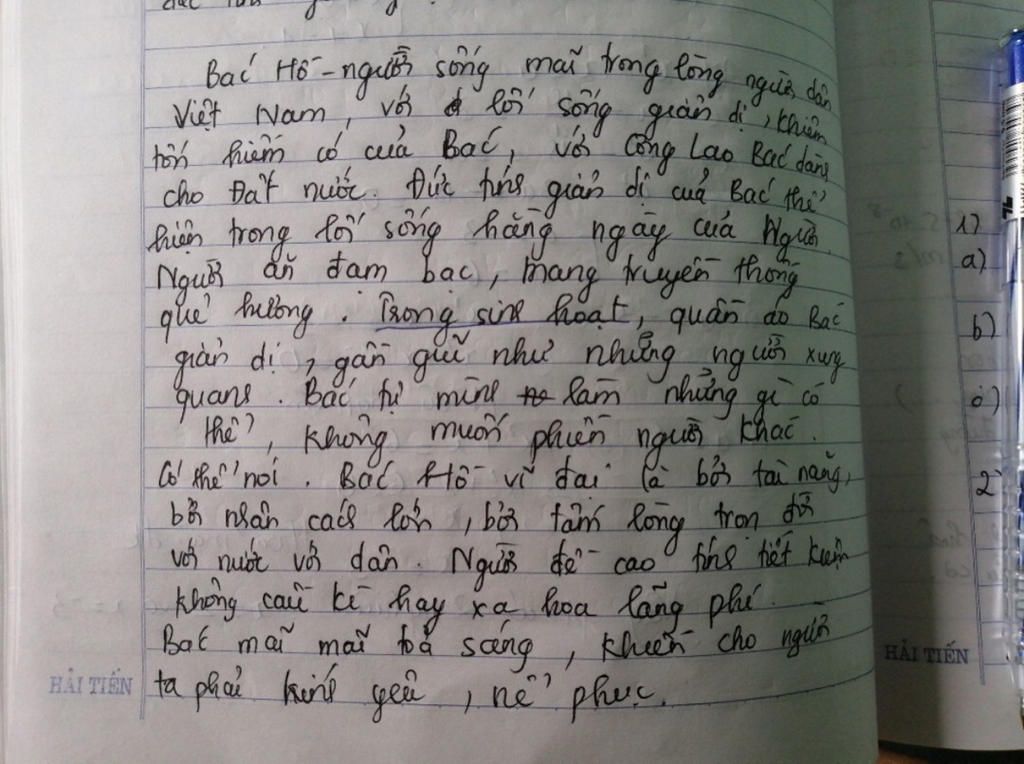 Bác Hồ - người sống mãi trong lòng người dân
Việt Nam, với lối sống giản dị, khiêm
tốn hiếm có của Bác, với Công Lao Bác dâng
cho Đất nước. Đức tính giản dị của Bác thể
hiện trong lối sống hằng ngày của Người.
Người ăn đạm bạc, mang truyền thống
quê hương. Trong sinh hoạt, quần áo Bác
giản dị, gần gũi như những người xung
quanh. Bác tự mình làm những gì có
thể, không muốn phiền người khác.
Có thể nói. Bác Hồ vĩ đại là bởi tài năng,
bởi nhân cách lớn, bởi tấm lòng trọn đời
với nước với dân. Người đề cao tính tiết kiệm
không cầu kì hay xa hoa lãng phí.
Bác mãi mãi toả sáng, khiến cho người
ta phải kính yêu, nể phục.
HẢI TIẾN
HẢI TIẾN
1)
a)
b)
c)
2